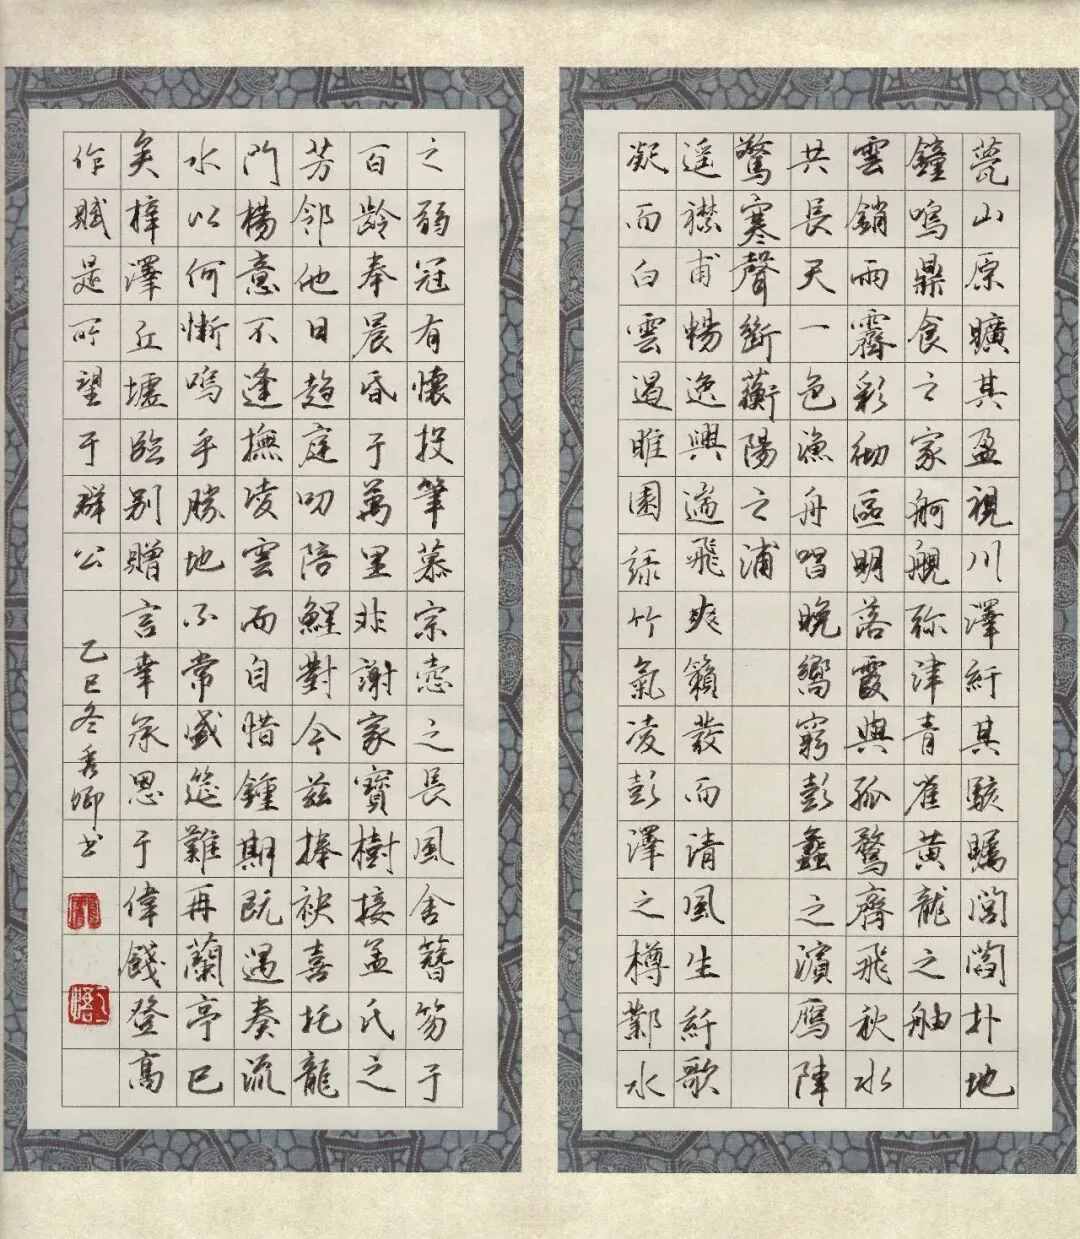 甍山原曠其盈視川澤紆其駭矚閭閻扑地
鐘鳴鼎食之家舸艦弥津青雀黃龍之舳
雲銷雨霽彩彻區明落霞與孤鶩齊飛秋水
共長天一色漁舟唱晚響窮彭蠡之濱鴈陣
驚寒聲斷衡陽之浦
遥襟甫暢逸興遄飛爽籟發而清風生紆歌
凝而白雲遏睢園綠竹氣凌彭澤之樽鄴水
之弱冠有懷投筆慕宗愨之長風舍簪笏于
百龄奉晨昏于萬里非謝家寶樹接孟氏之
芳邻他日趋庭叨陪鯉對今兹捧袂喜托龍
門楊意不逢撫凌雲而自惜鍾期既遇奏流
水以何慚嗚乎勝地不常盛筵難再蘭亭已
矣梓澤丘墟臨别贈言幸承恩于偉餞登高
作賦是所望于群公
乙巳冬秀卿书